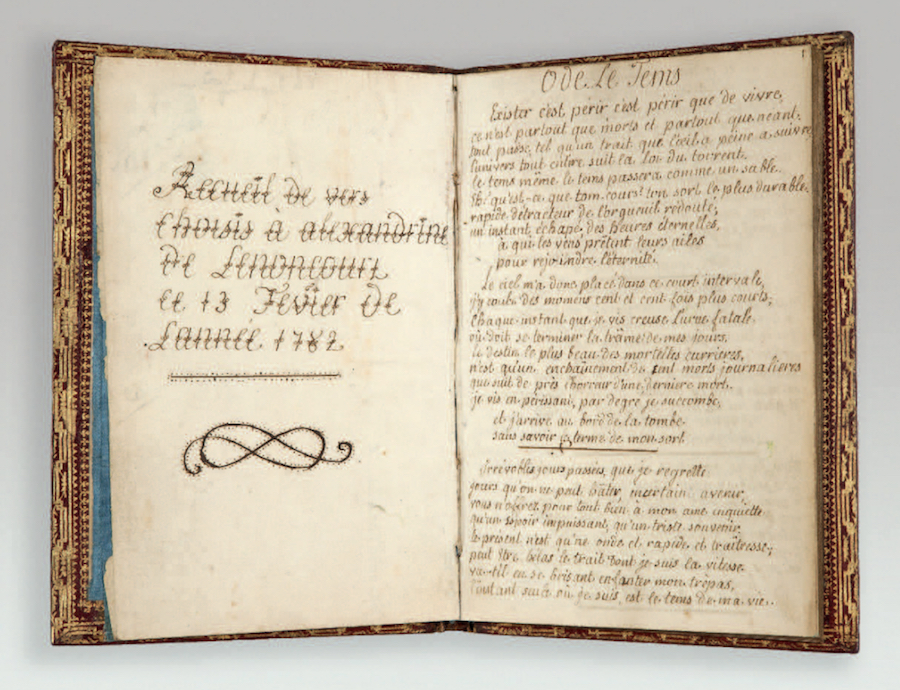 Recueil de vers
choisis à alexandrine
De Lenoncourt
ce 13 Fevier De
Lannee 1782
1
Ode Le Tems
Exister c'est perir c'est perir que de vivre,
ce n'est partout que morts et partout que neant.
tout passe, tel qu'un trait que l'oeil a peine a suivre
l'univers tout entier suit la Loi du torrent.
le tems même le tems passera comme un sable.
qu'est-ce que ton cours! ton sort le plus durable.
rapide detracteur de l'orgueuil redouté,
un instant echapé des heures eternelles,
à qui les vens prêtent leurs ailes
pour rejoindre l'éternité.
Le ciel m'a donc placé dans ce court intervale,
j'y coule des momens cent et cent fois plus courts;
Chaque instant que je vis creuse l'urne fatale
où doit se terminer la trâme de mes jours.
le destin le plus beau des mortelles carrieres,
n'est qu'un enchaînement de cent morts journalieres
qui suit de près l'horreur d'une derniere mort.
je vis en perissant, par degré je succombe,
et j'arrive au bord de la tombe
sans savoir le terme de mon sort
jours passés, que je regrette
jours qu'on ne peut hâter, incertain avenir,
vous n'offrez pour tout bien à mon ame inquiette
qu'un espoir impuissant, qu'un triste souvenir
le present n'est qu'ne onde et rapide et traîtresse;
peut être helas le trait dont je suis la vitesse
va-t'il en se brisant enfanter mon trépas,
l'instant seul où je suis, est le tems de ma vie.